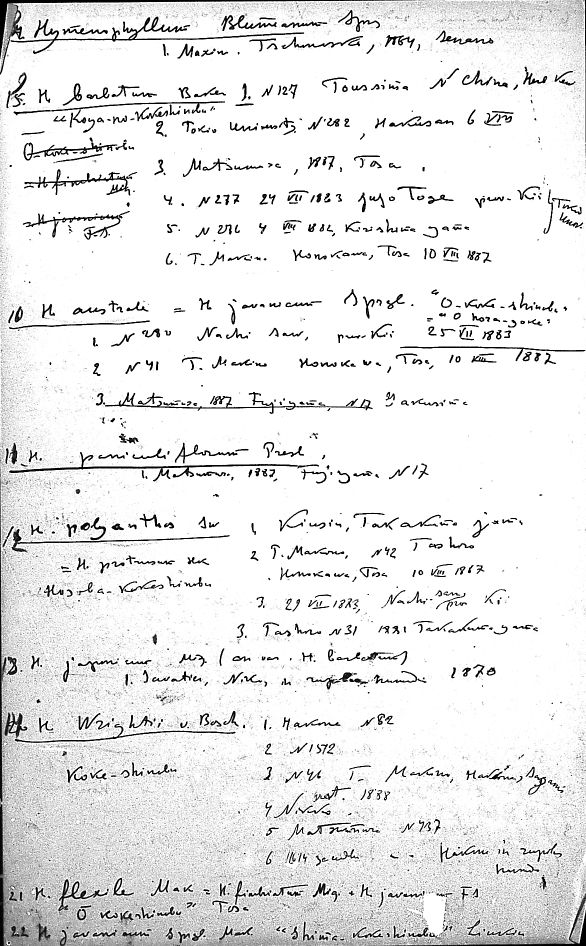 Hymenophyllum Blumeanum Spr.
1. Maxim. Tschonoski, 1864, Senano
H. barbatum Baker 1. N 127 Toussima N China,
"Koya-no-Kokeshinobu"
2. Tokio University N 282, Hakusan 6 VIII
O-koke-shinobu
3. Matsumura, 1887, Tosa.
= H. fimbriatum
4. N 277 24 VII 1883 Toge prov. Kii
= H. javanicum
5. N 276 4 VIII 1882, Kirishima yama
6. T. Makino Honokawa, Tosa 10 VIII 1887
10 H. australe = H. javanicum Sprgl. "O-koke-shinobu"
1. N 280 Nachi San, prov. Kii 25 VII 1883
2 N 41 T. Makino Honokawa, Tosa, 10 VIII 1887
3. Matsumura, 1887 Fujiyama, N 17 Yakusima
11. H. paniculiflorum Presl.
1. Matsumura, 1887, Fujiyama N 17
12 H. polyanthos Sw
1. Kiusiu, Takakuma yama
2 T. Makino, N 42 Tashiro
= H. protrusum Hk
Honokawa, Tosa 10 VIII 1887
-Kokeshinobu
3. 29 VII 1883, Nachi-san prov Kii
3. Tashiro N 31 1881 Takakuma yama
13 H. japonicum Miq (an var. H. barbatum)
1. Savatier, Nikko, in rupibus 1870
H. Wrightii v. Bosch. 1. Hakone N 82
2 N 1572
Koke-shinobu
3 N 46 T. Makino, Hakone, Sagami
1888
4 Nikko
5 Matsumura N 437
6 Hakone in rupibus
21 H. flexile Mak = H. fimbriatum Miq. = H. javanicum FS
"O kokeshinobu" Tosa
22 H. javanicum Sprgl. Mak "Shima-Kokeshinobu" Liukiu